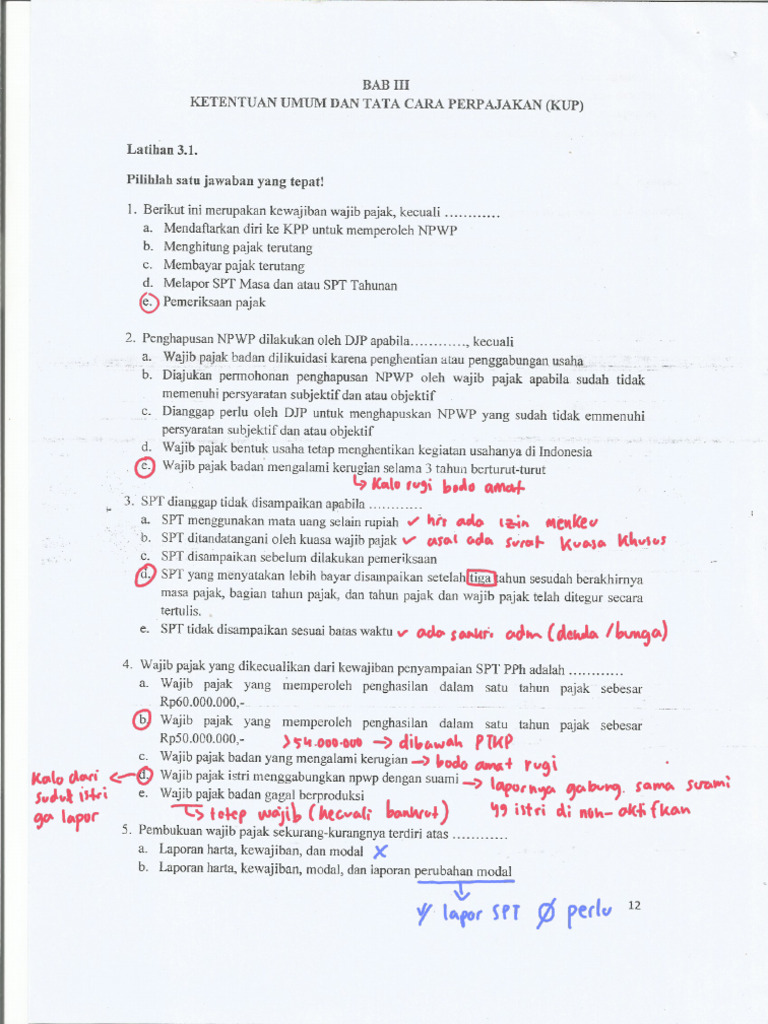 BAB III
KETENTUAN UMUM DAN TATA CARA PERPAJAKAN (KUP)
Latihan 3.1.
Pilihlah satu jawaban yang tepat!
1. Berikut ini merupakan kewajiban wajib pajak, kecuali …………
a. Mendaftarkan diri ke KPP untuk memperoleh NPWP
b. Menghitung pajak terutang
c. Membayar pajak terutang
d. Melapor SPT Masa dan atau SPT Tahunan
e. Pemeriksaan pajak
2. Penghapusan NPWP dilakukan oleh DJP apabila…………, kecuali
a. Wajib pajak badan dilikuidasi karena penghentian atau penggabungan usaha
b. Diajukan permohonan penghapusan NPWP oleh wajib pajak apabila sudah tidak
memenuhi persyaratan subjektif dan atau objektif
c. Dianggap perlu oleh DJP untuk menghapuskan NPWP yang sudah tidak emmenuhi
persyaratan subjektif dan atau objektif
d. Wajib pajak bentuk usaha tetap menghentikan kegiatan usahanya di Indonesia
e. Wajib pajak badan mengalami kerugian selama 3 tahun berturut-turut
↳ Kalo rugi bodo amat
3. SPT dianggap tidak disampaikan apabila …………
a. SPT menggunakan mata uang selain rupiah ✓ hrs ada izin menkeu
b. SPT ditandatangani oleh kuasa wajib pajak ✓ asal ada surat kuasa khusus
c. SPT disampaikan sebelum dilakukan pemeriksaan
d. SPT yang menyatakan lebih bayar disampaikan setelah tiga tahun sesudah berakhirnya
masa pajak, bagian tahun pajak, dan tahun pajak dan wajib pajak telah ditegur secara
tertulis.
e. SPT tidak disampaikan sesuai batas waktu ✓ ada sanksi adm (denda / bunga)
4. Wajib pajak yang dikecualikan dari kewajiban penyampaian SPT PPh adalah …………
a. Wajib pajak yang memperoleh penghasilan dalam satu tahun pajak sebesar
Rp60.000.000,-
b. Wajib pajak yang memperoleh penghasilan dalam satu tahun pajak sebesar
Rp50.000.000,- >54.000.000 → dibawah PTKP
c. Wajib pajak badan yang mengalami kerugian → bodo amat rugi
Kalo dari sudut istri ga lapor ← d. Wajib pajak istri menggabungkan npwp dengan suami → lapornya gabung sama suami
yg istri di non-aktifkan
e. Wajib pajak badan gagal berproduksi
↳ tetep wajib (kecuali bankrut)
5. Pembukuan wajib pajak sekurang-kurangnya terdiri atas …………
a. Laporan harta, kewajiban, dan modal ✗
b. Laporan harta, kewajiban, modal, dan laporan perubahan modal
lapor SPT Ø perlu
12